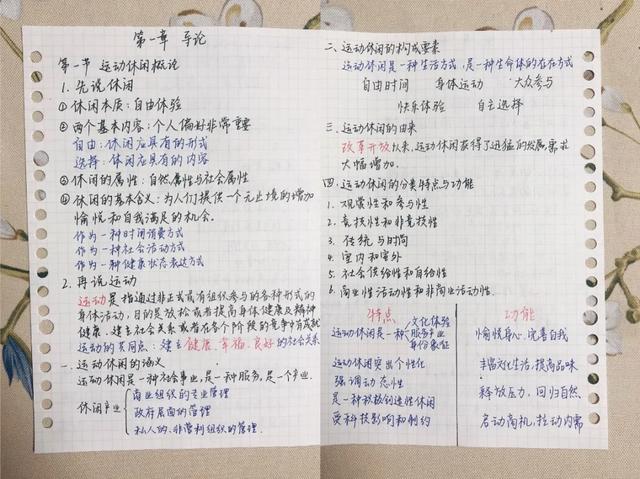 第一章 导论
第一节 运动休闲概论
1. 先说休闲
①休闲本质：自由体验
②两个基本内容：个人偏好非常重要
自由：休闲应具有的形式
选择：休闲应具有的内容
③休闲的属性：自然属性与社会属性
④休闲的基本含义：为人们提供一个无止境的增加
愉悦和自我满足的机会。
作为一种时间消费方式
作为一种社会活动方式
作为一种健康状态表达方式
2. 再说运动
运动是指通过非正式或有组织参与的各种形式的
身体活动，目的是放松或者提高身体健康及精神
健康、建立社会关系或者在各个阶段的竞争中有成就
运动的共同点：建立健康、幸福、良好的社会关系
一、运动休闲的涵义
运动休闲是一种社会事业，是一种服务，是一个产业.
休闲产业
商业组织的专业管理
政府层面的管理
私人的、非营利组织的管理.
二、运动休闲的构成要素
运动休闲是一种生活方式，是一种生命体的存在方式
自由时间 身体运动 大众参与
快乐体验 自主选择
三、运动休闲的由来
改革开放以来，运动休闲获得了迅猛的发展，需求
大幅增加。
四、运动休闲的分类特点与功能
1. 观赏性和参与性
2. 竞技性和非竞技性
3. 传统与时尚
4. 室内和室外
5. 社会供给性和自给性
6. 商业性活动性和非商业活动性.
特点 功能
运动休闲是一种 文化体验 服务产业 身份象征
愉悦身心，完善自我
运动休闲突出个性化 丰富文化生活，提高品味
强调动态性
是一种积极创造性休闲 释放压力，回归自然
受科技影响和制约 启动商机，拉动内需